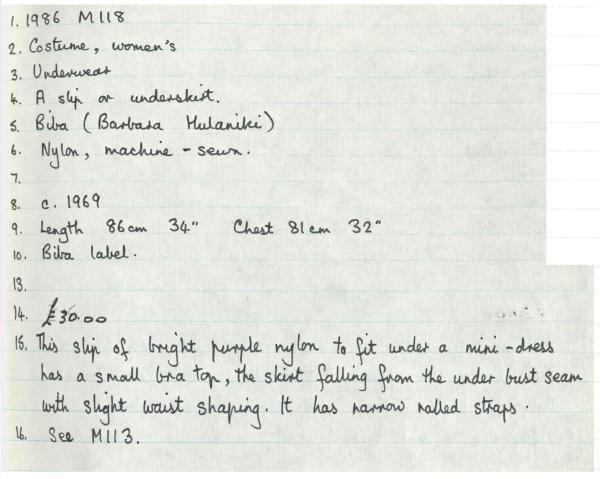 1. 1986 M118
2. Costume, women's
3. Underwear
4. A slip or underskirt.
5. Biba (Barbara Hulaniki)
6. Nylon, machine - sewn.
7.
8. c. 1969
9. Length 86cm 34" Chest 81cm 32"
10. Biba label.
13.
14. £30.00
15. This slip of bright purple nylon to fit under a mini-dress
has a small bra top, the skirt falling from the under bust seam
with slight waist shaping. It has narrow rolled straps.
16. See M113.